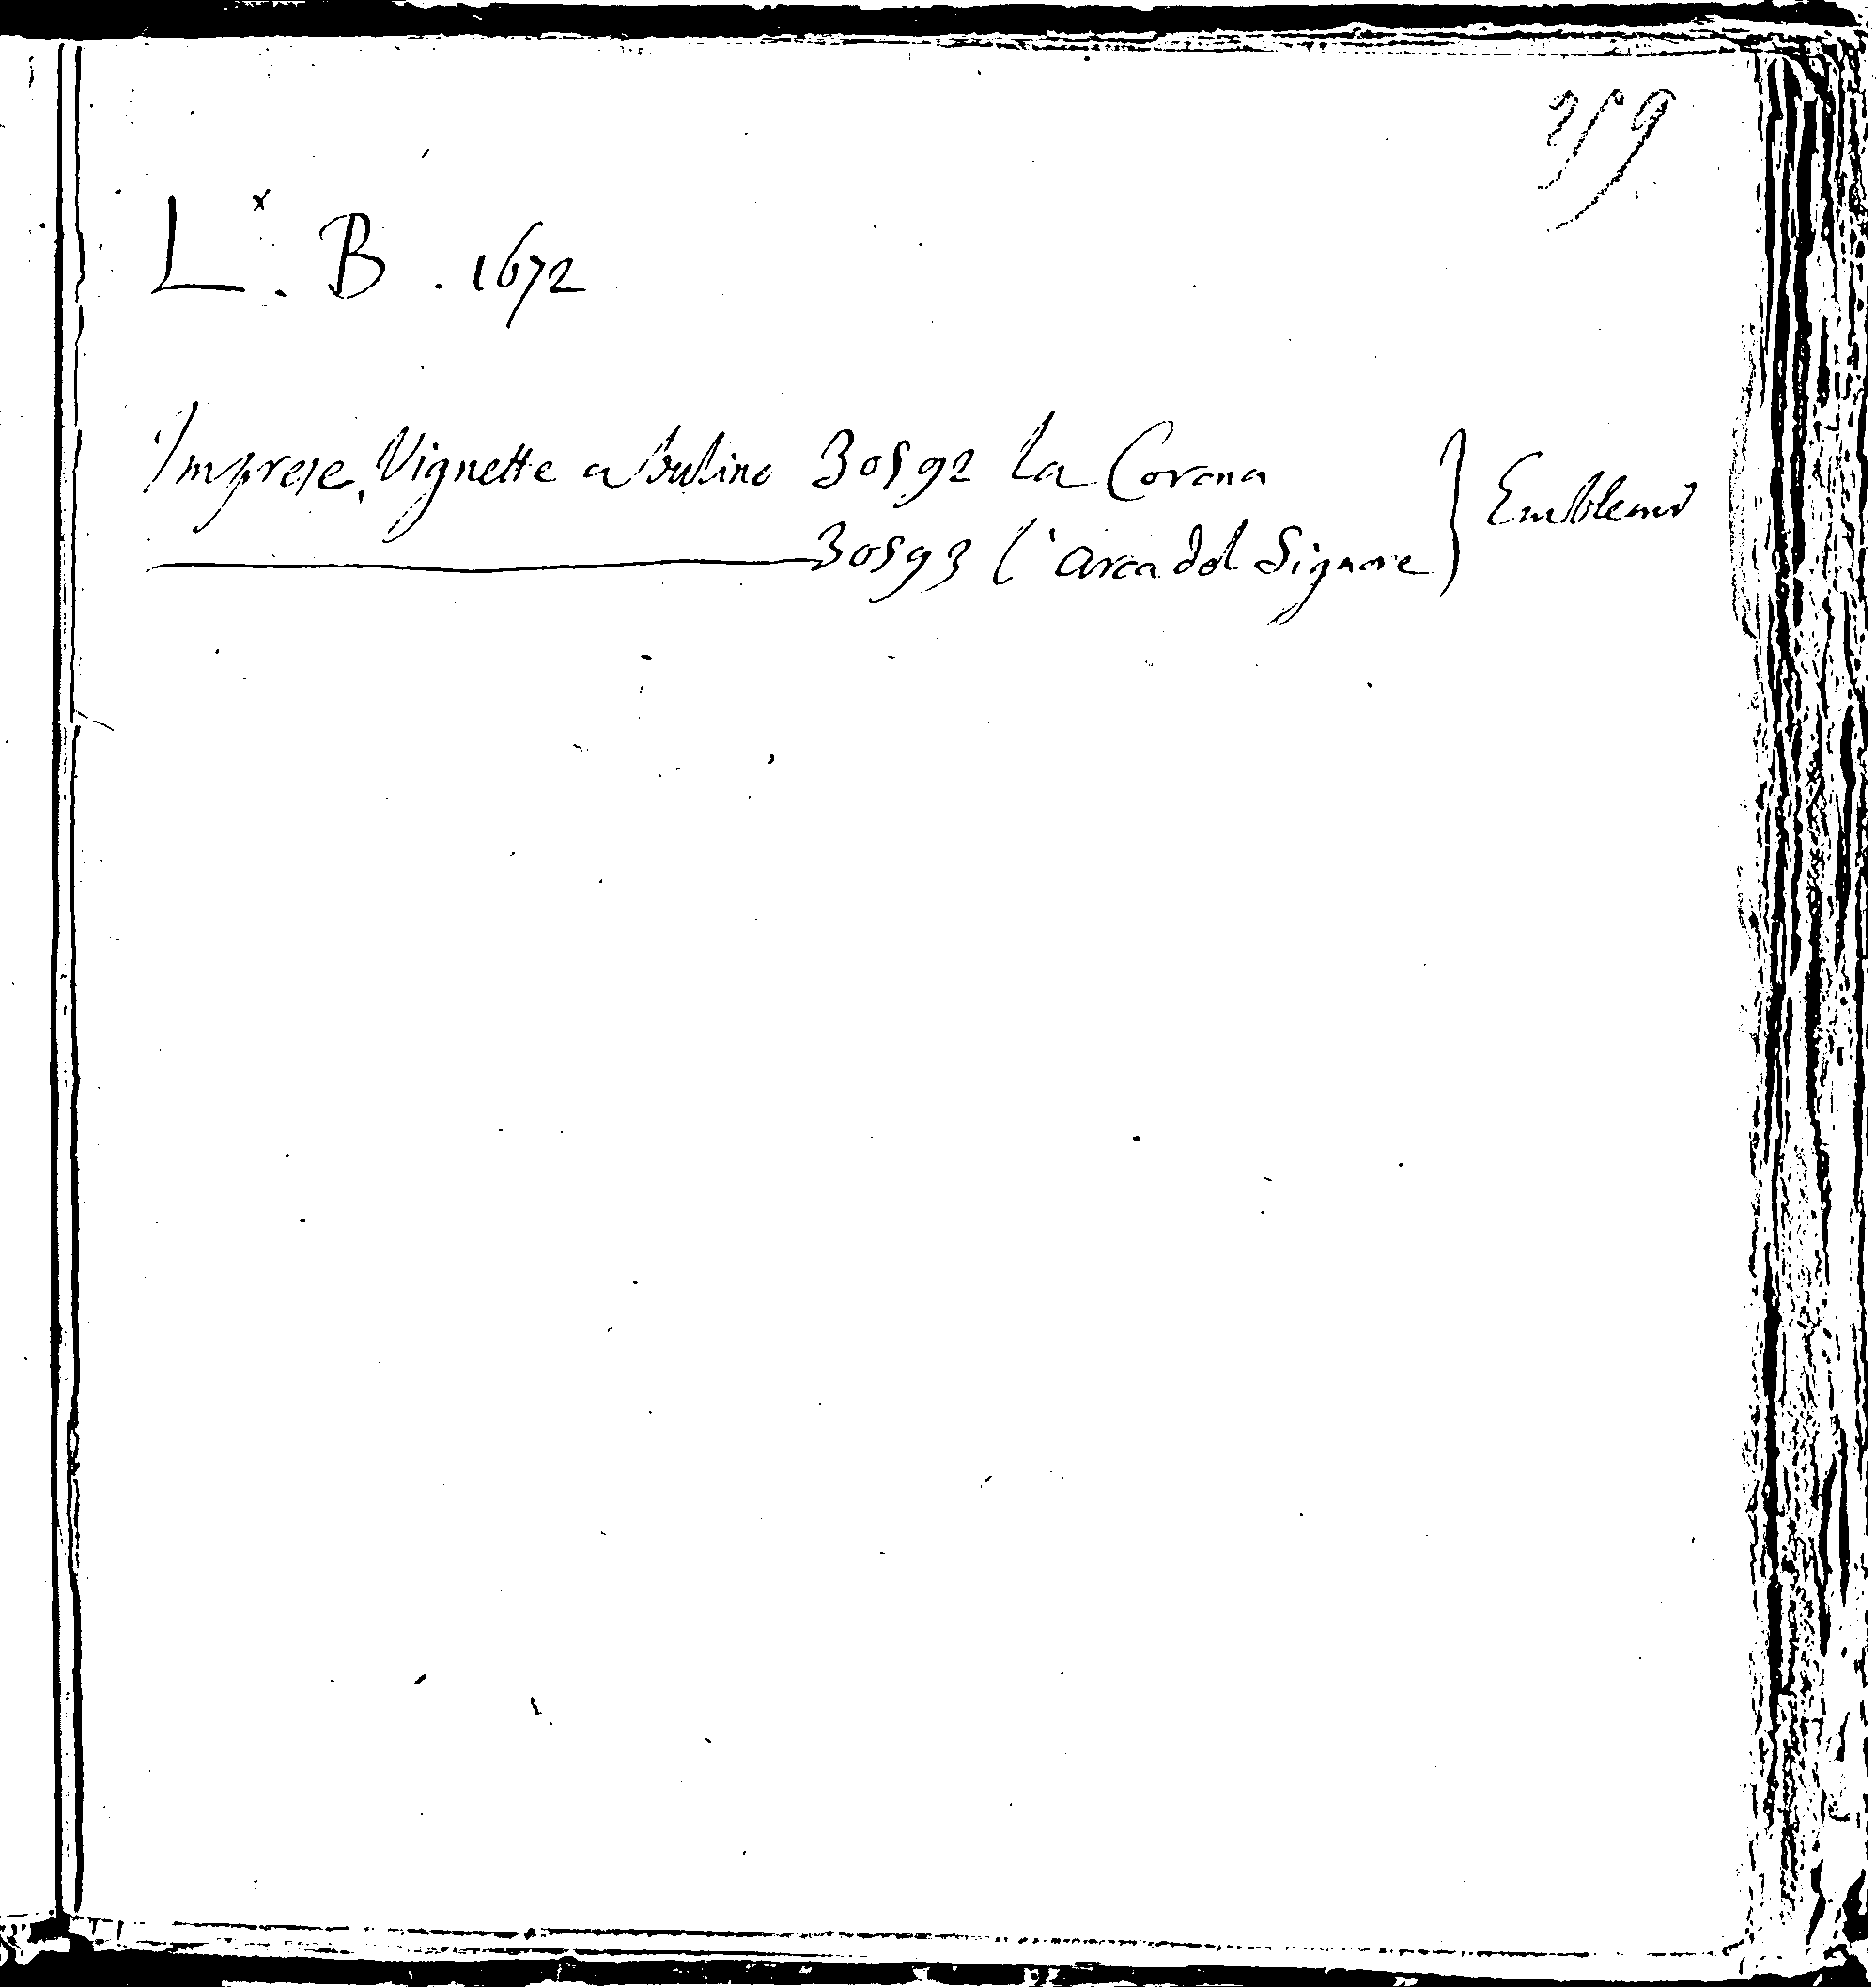 259
L. B. 1672
Imprese, Vignette a bulino 30592 La Corona
30593 l'arca del Signore } Emblemi